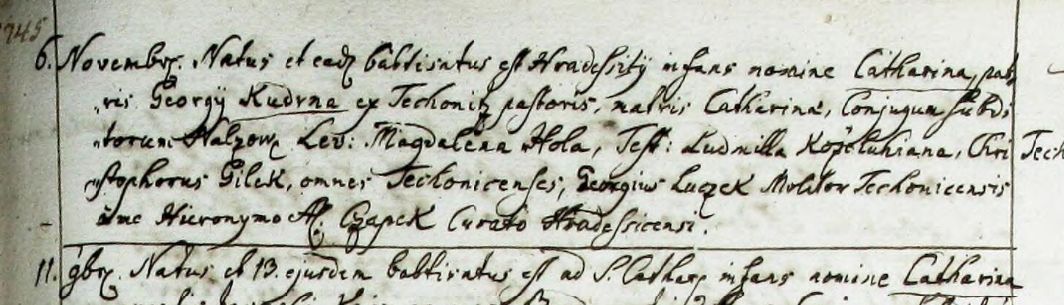 1745
6. Novembr. Natus et ead baptisatus est Hradessity infans nomine Catharina, pat
ris Georgÿ Kudrna ex Techonitz pastoris, matris Catharinæ, Conjugum subdi
torum Nalzow, Lev: Magdalena Hola, Test: Ludmilla Koželuhiana, Chri Tech
stophorus Gilek, omnes Techonicenses, Georgius Luczek Molitor Techonicensis
a me Hieronymo Czapek Curato Hradessicensi.
11. 9br. Natus et 13. ejusdem babtisatus est ad S. Cathar infans nomine Catharina